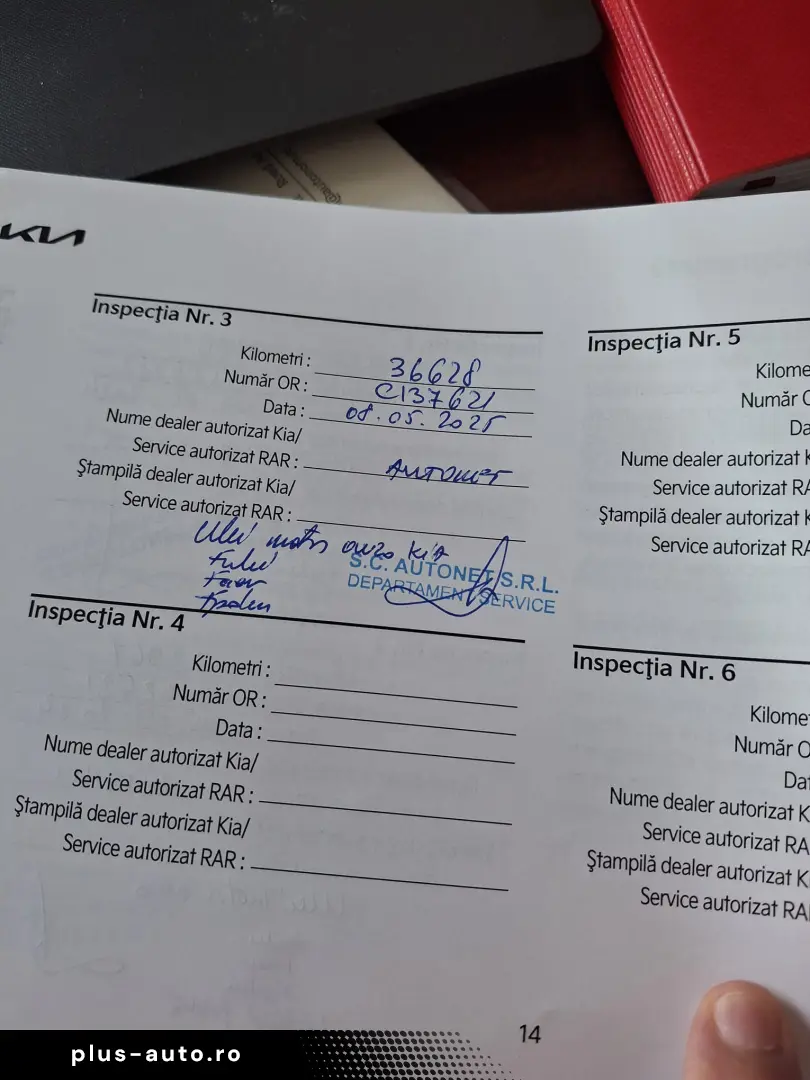 KIA
Inspecţia Nr. 3
Kilometri : 36628
Număr OR : C137621
Data : 08.05.2025
Nume dealer autorizat Kia/
Service autorizat RAR : AUTONET
Ştampilă dealer autorizat Kia/
Service autorizat RAR :
Ulei motor
S.C. AUTONET S.R.L.
DEPARTAMENT SERVICE
Inspecţia Nr. 4
Kilometri :
Număr OR :
Data :
Nume dealer autorizat Kia/
Service autorizat RAR :
Ştampilă dealer autorizat Kia/
Service autorizat RAR :
Inspecţia Nr. 5
Kilome
Număr O
Da
Nume dealer autorizat K
Service autorizat RA
Ştampilă dealer autorizat K
Service autorizat RA
Inspecţia Nr. 6
Kilome
Număr O
Dat
Nume dealer autorizat K
Service autorizat RA
Ştampilă dealer autorizat K
Service autorizat RA
14
plus-auto.ro